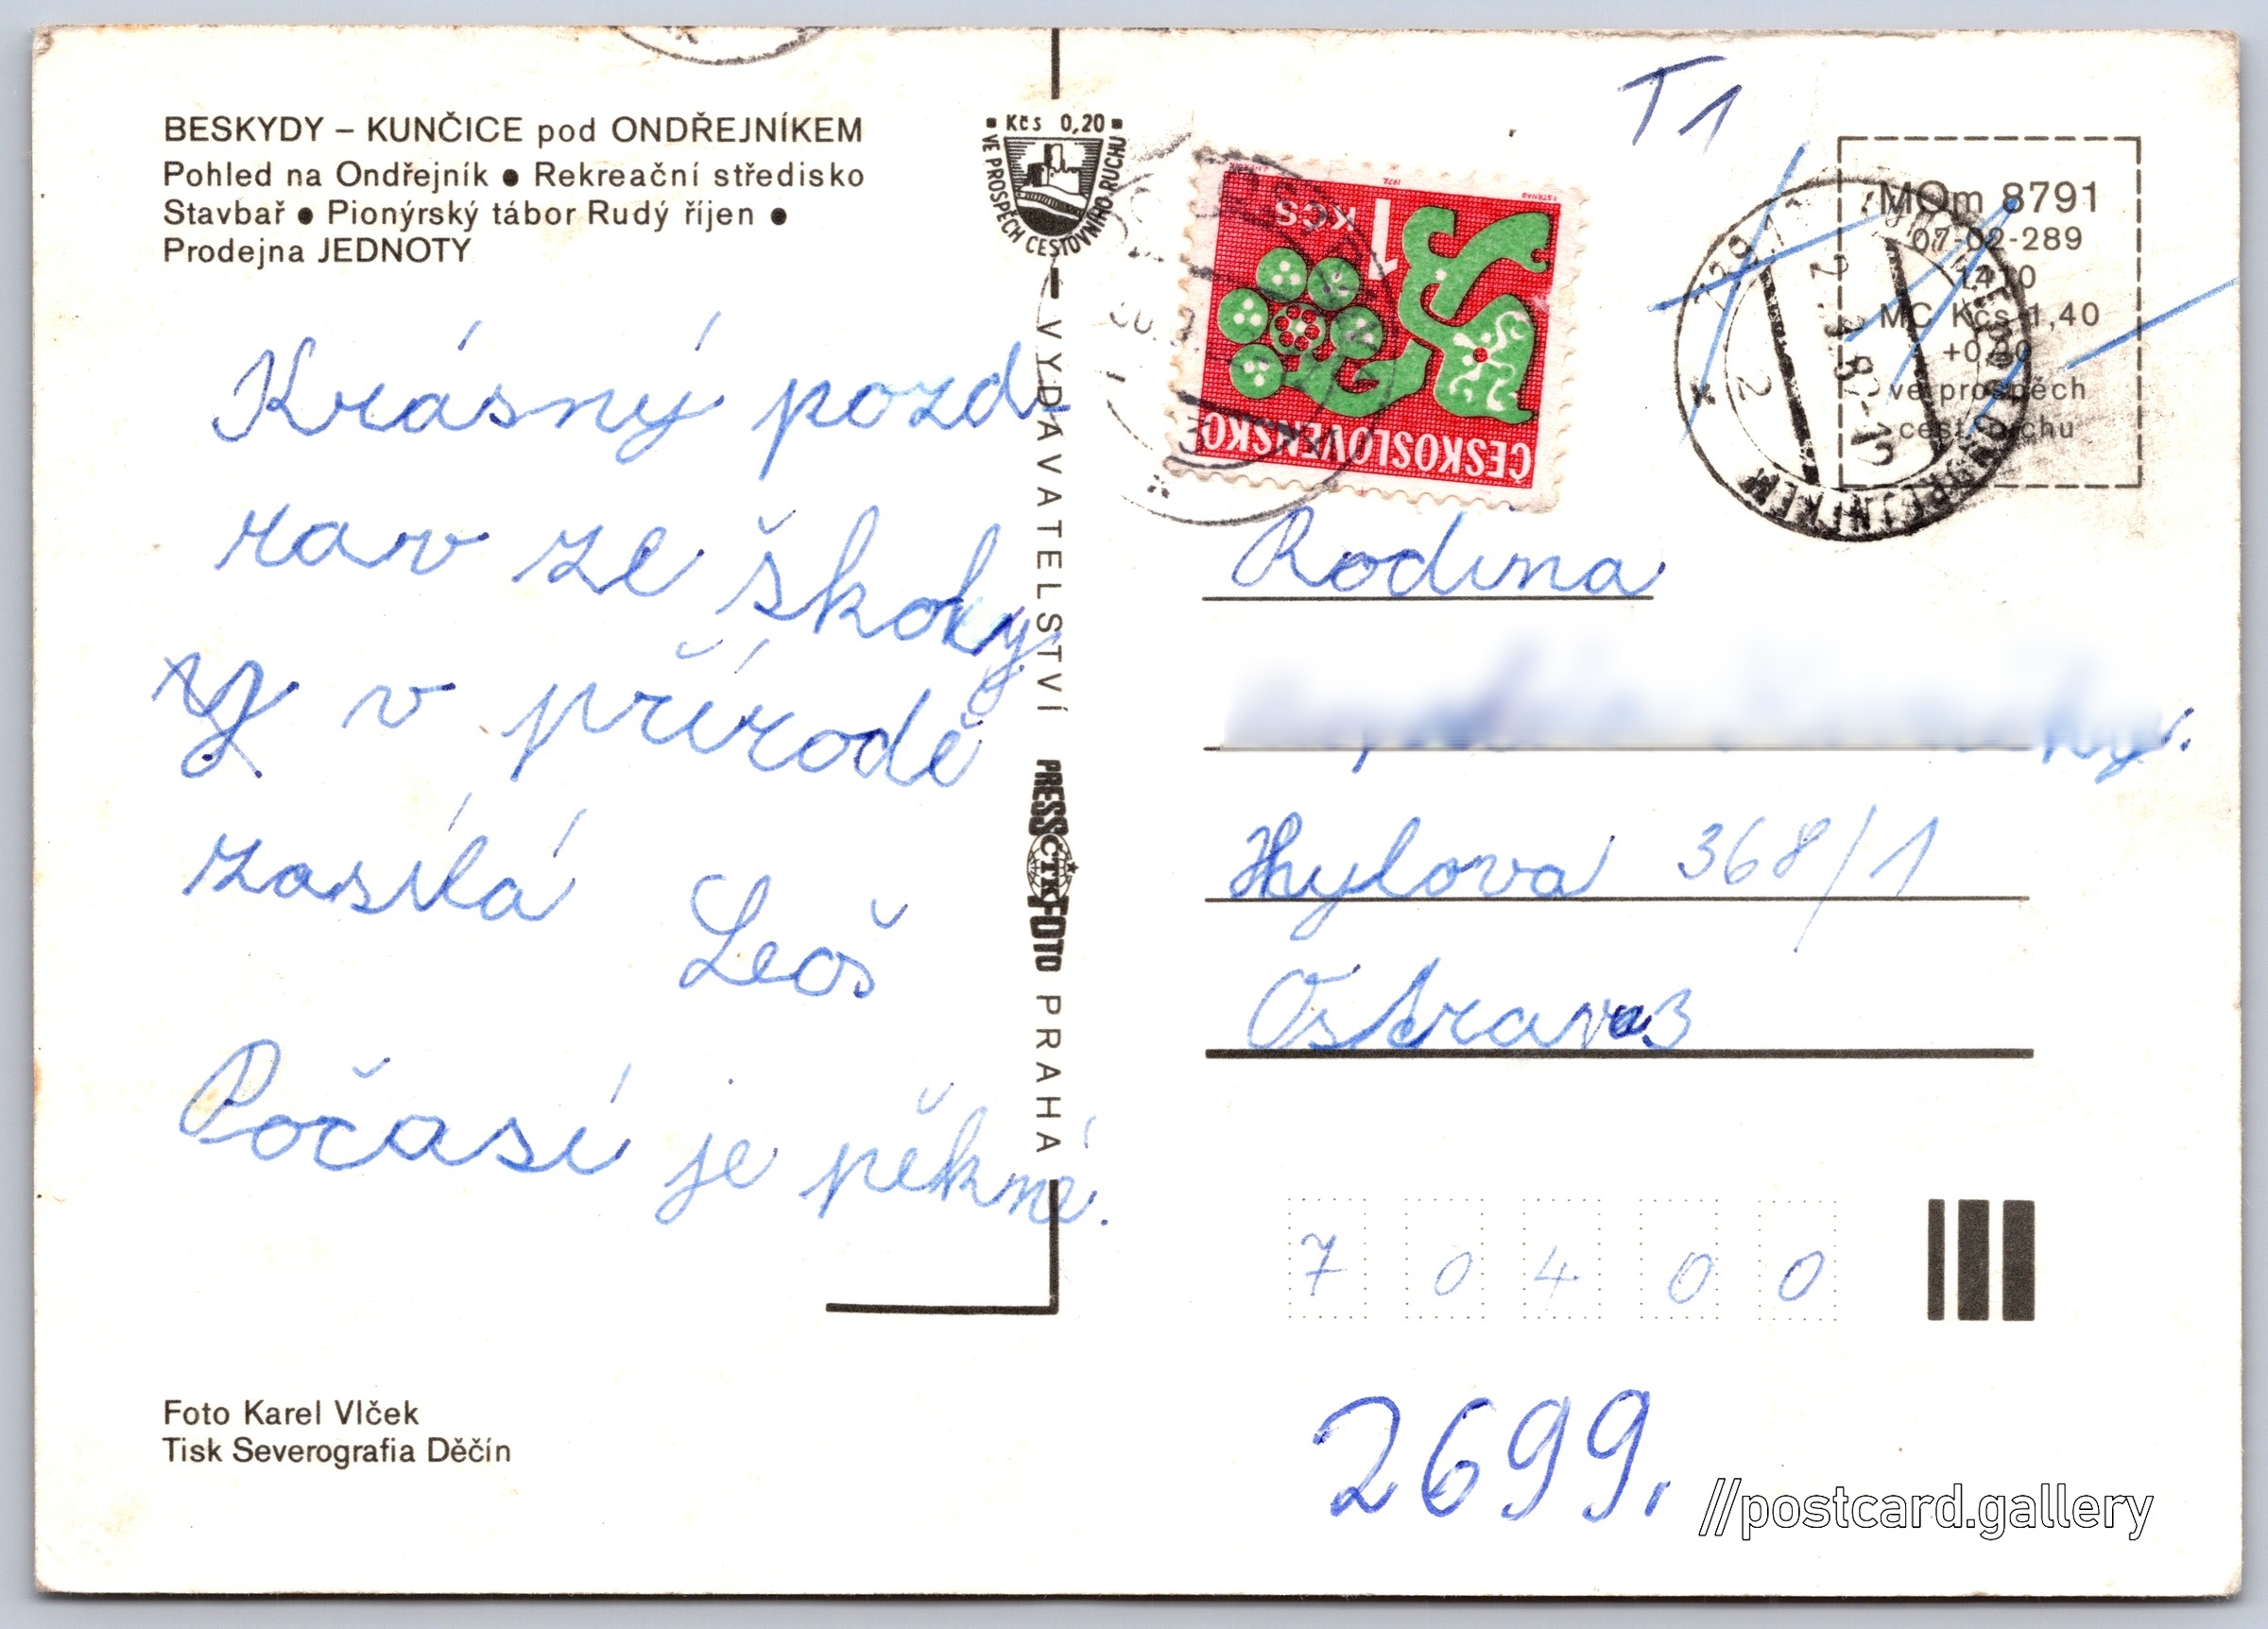 BESKYDY – KUNČICE pod ONDŘEJNÍKEM
Pohled na Ondřejník ● Rekreační středisko
Stavbař ● Pionýrský tábor Rudý říjen ●
Prodejna JEDNOTY
Krásný pozd-
rav ze školy
v přírodě
zasílá Leoš
Počasí je pěkné.
Foto Karel Vlček
Tisk Severografia Děčín
Kčs 0,20
VE PROSPĚCH CESTOVNÍHO RUCHU
VYDAVATELSTVÍ PRESSČTKFOTO PRAHA
1 KČS
ČESKOSLOVENSKO
T1
MOm 8791
07-02-289
14 10
MC Kčs 1,40
+0,20
ve prospěch
cest. ruchu
Rodina
Hylova 368/1
Ostrava 3
7 0 4 0 0
2699.
//postcard.gallery